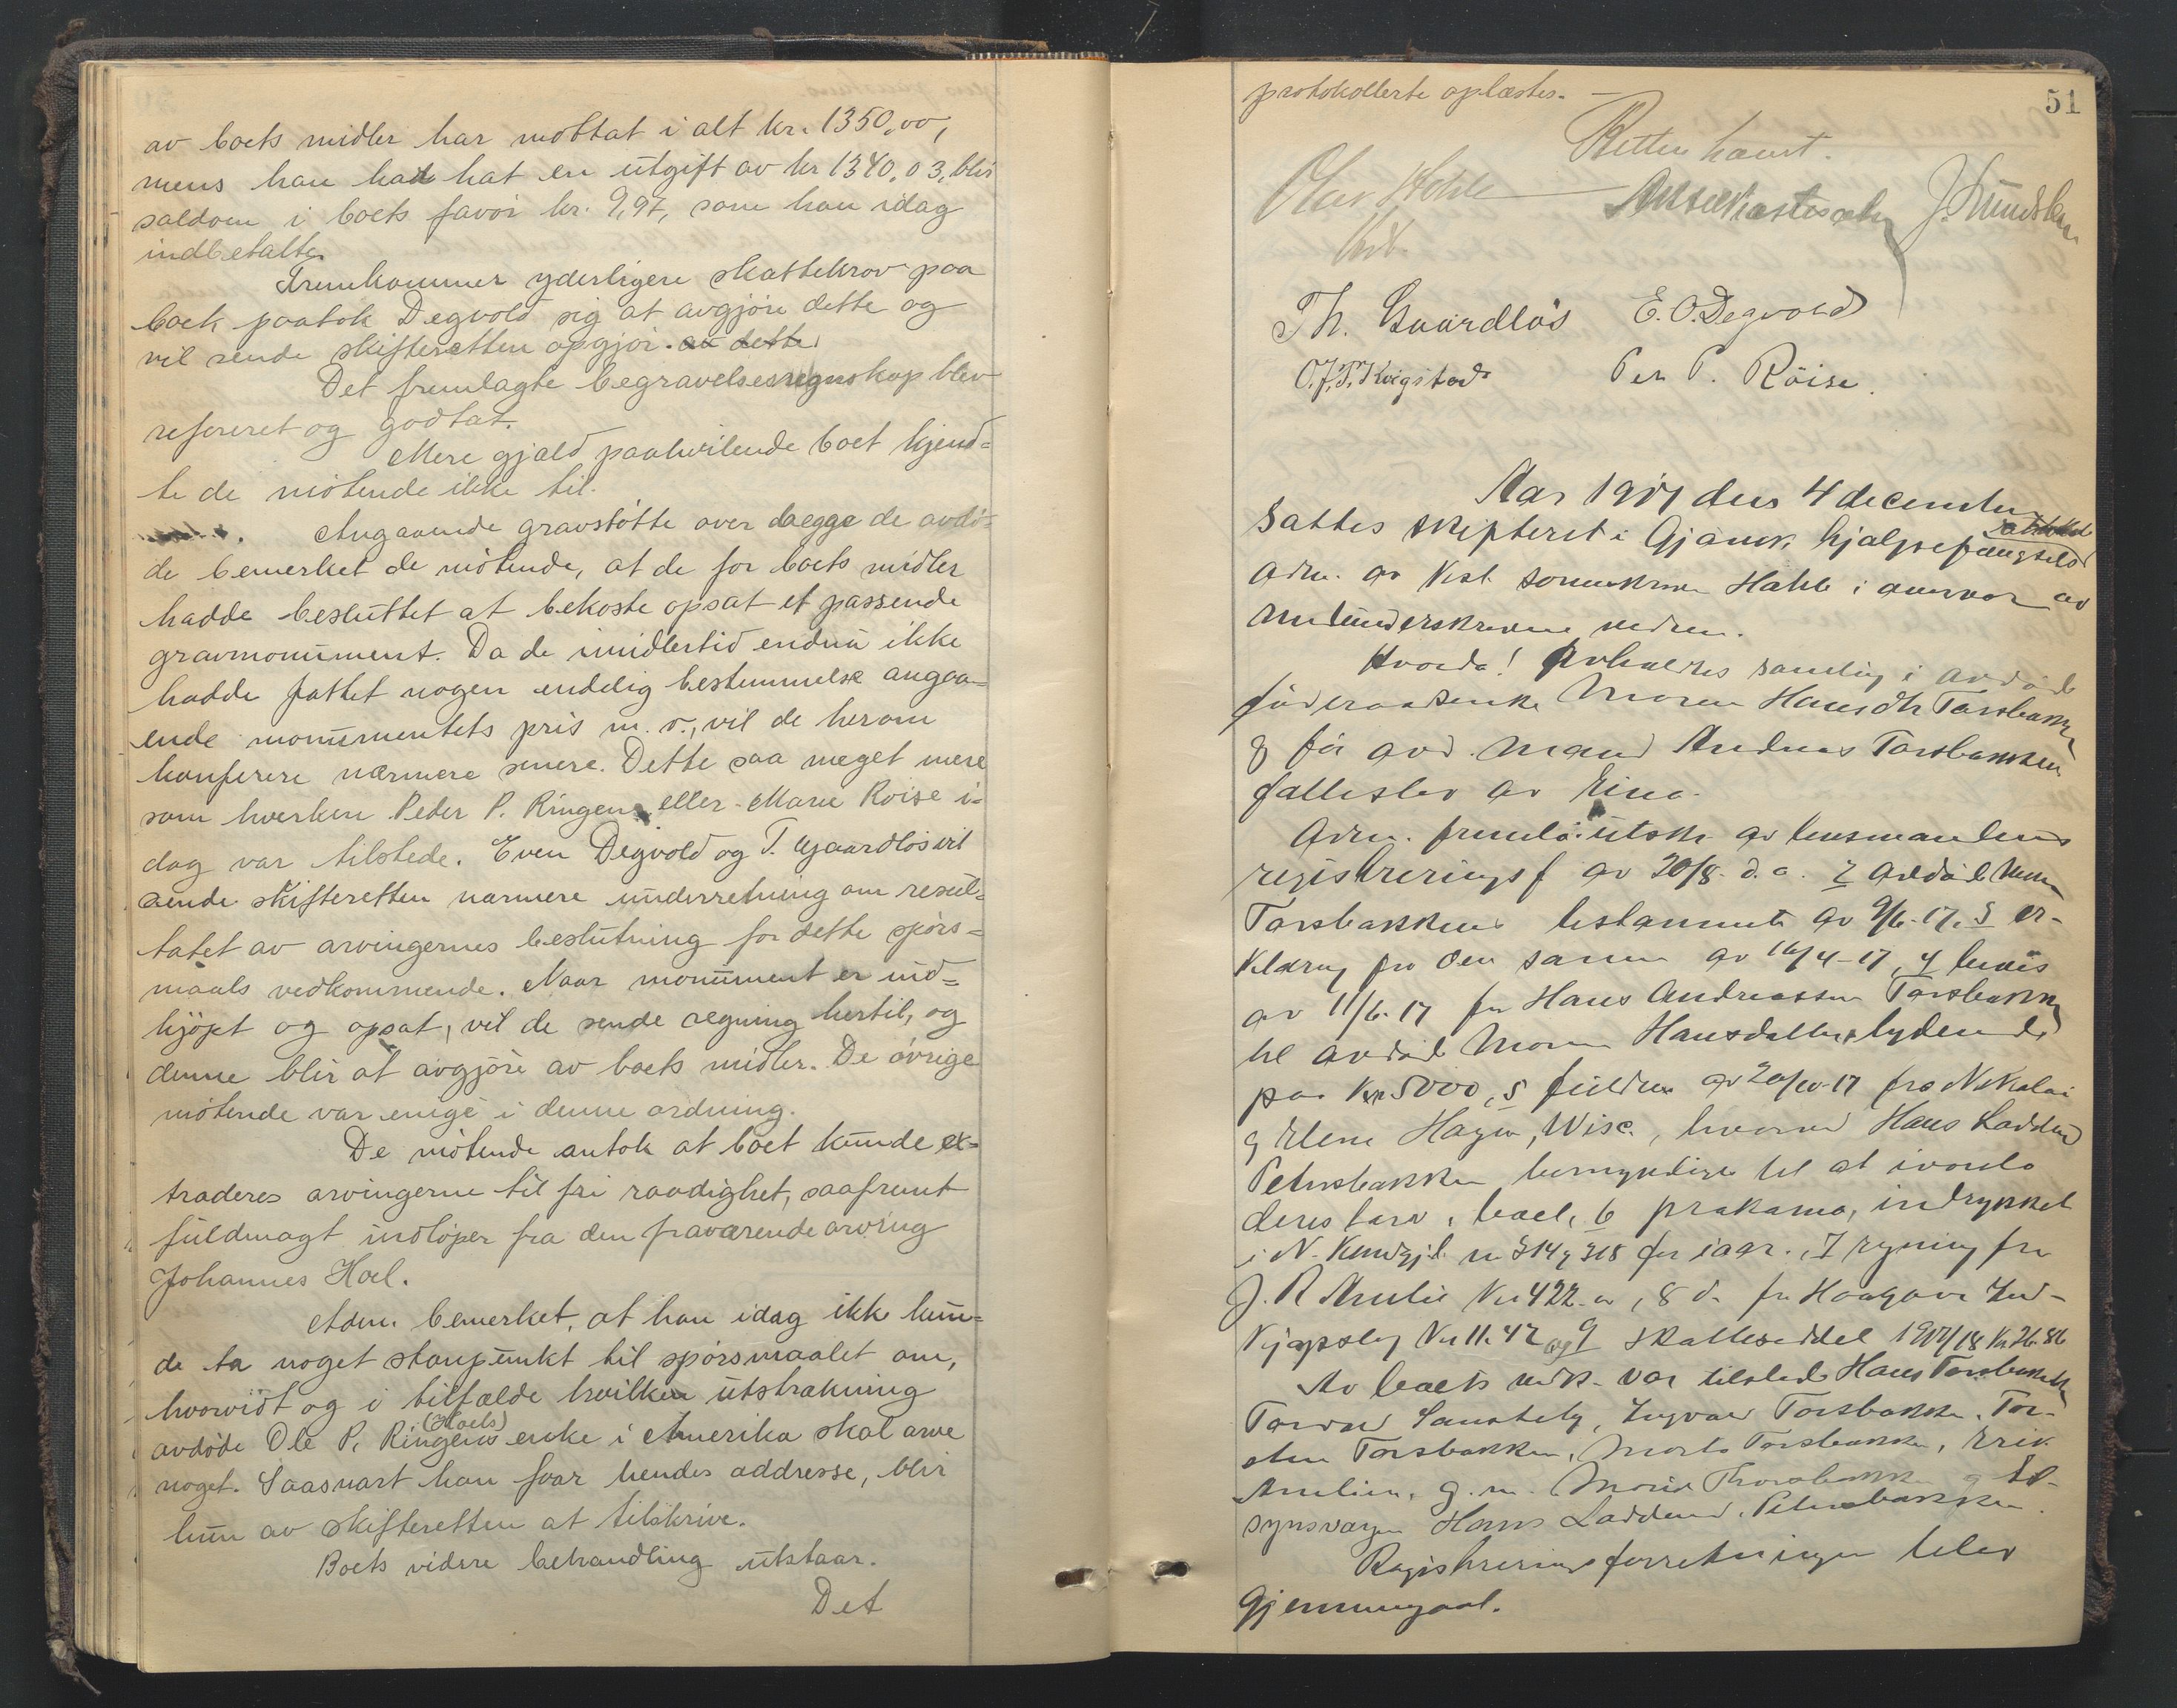 av boets midler har mottat i alt kr. 1350,00,
mens han had hat en utgift av kr 1340,03, blir
saldoen i boets favør kr. 9,97, som han idag
indbetalte.
Fremkommer yderligere skattekrav paa
boet paatok Degvold sig at avgjøre dette og
vil sende skifteretten opgjør. av dette
Det fremlagte begravelsesregnskap blev
referert og godtat.
Mere gjæld paahvilende boet kjend-
te de møtende ikke til.
Angaaende gravstøtte over begge de avdø-
de bemerket de møtende, at de for boets midler
hadde besluttet at bekoste opsat et passende
gravmonument. Da de imidlertid endnu ikke
hadde fattet nogen endelig bestemmelse angaa-
ende monumentets pris m. v., vil de herom
konferere nærmere senere. Dette saa meget mere
som hverken Peder P. Ringen eller Marie Røise i-
dag var tilstede. Even Degvold og T. Gaardløs vil
sende skifteretten nærmere underretning om resul-
tatet av arvingernes beslutning for dette spørs-
maals vedkommende. Naar monument er ind-
kjøpt og opsat, vil de sende regning hertil, og
denne blir at avgjøre av boets midler. De øvrige
møtende var enige i denne ordning.
De møtende antok at boet kunde ex-
traderes arvingerne til fri raadighet, saafremt
fuldmagt indløper fra den fraværende arving
Johannes Hoel.
Adm. bemerket, at han idag ikke kun-
de ta noget standpunkt til spørsmaalet om,
hvorvidt og i tilfælde hvilken utstrækning
(Hoels)
avdøde Ole P. Ringens enke i Amerika skal arve
noget. Saasnart han faar hendes addresse, blir
hun av skifteretten at tilskrive.
Boets videre behandling utstaar.
Det
51
protokollerte oplæstes. —
Retten hævet.
Th. Gaardløs E. O. Degvold
O. J. T. Kvigstad Per P. Røise.
Aar 1917 den 4 december
sattes skifteret i Gjøvik hjælpefængsels
adm. av
medunderskrevne vidner.
Hvorda! Avholdtes samling i avdøde
føderaadsenke Maren Hansdtr Torsbakken
og før avd. mand Andreas Torsbakken
fællesbo av Eina.
Adm. fremla 1 utskr. av lensmandens
registreringsf. av 20/8 d. a. 2 avdøde Maren
Torsbakkens testamente av 9/6-17, 3 er-
klæring fra den samme av 16/4-17, 4 bevis
av 11/6-17 fra Hans Andreassen Torsbakken
til avdøde Maren Hansdatter lydende
paa Kr. 5000, 5 fuldm. av 20/10-17 fra Nikolai
og Elene Hagen, Wisc., hvorved Hans Laddend
Petersbakken bemyndiges til at ivareta
deres tarv i boet, 6 proklama, indrykket
i N. Kundgj.t. nr 314 og 318 for iaar, 7 regning fra
J. R. Amlie Kr. 422.00, 8 d. fra Ind-
kjøpslag Kr. 11.47 og 9 skatteseddel 1917/18 Kr 26.86
Av boets vedk. var tilstede Hans Torsbakken
Torvar, Ingvar Torsbakken, Tor-
sten Torsbakken, Marte Torsbakken, Erik
Amlien, g. m. Maria Thorsbakken og til-
synsvergen Hans Laddend. Petersbakken.
Registreringsforretningen blev
gjennemgaat.